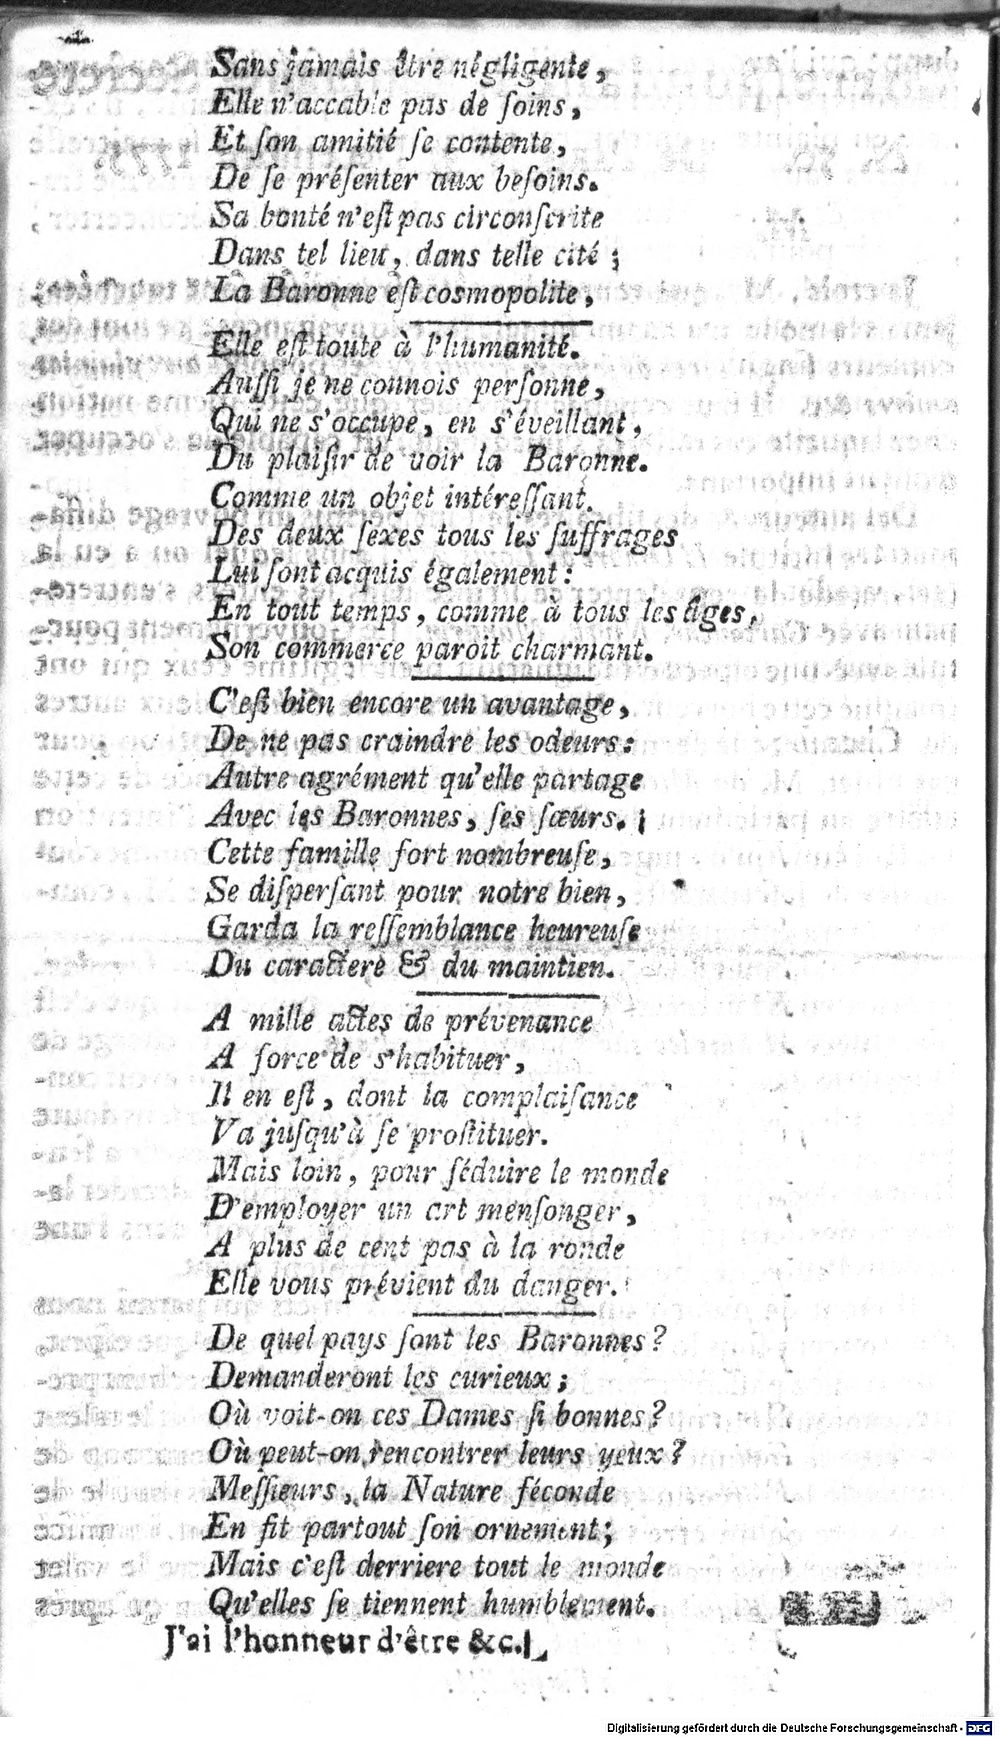 Sans jamais être négligente,
Elle n'accable pas de ſoins,
Et ſon amitié ſe contente,
De ſe préſenter aux beſoins.
Sa bonté n'eſt pas circonſcrite
Dans tel lieu, dans telle cité;
La Baronne eſt cosmopolite,
Elle eſt toute à l'humanité.
Auſſi je ne connois perſonne,
Qui ne s'occupe, en s'éveillant,
Du plaiſir de voir la Baronne.
Comme un objet intéreſſant.
Des deux ſexes tous les ſuffrages
Lui ſont acquis également:
En tout temps, comme à tous les âges,
Son commerce paroit charmant.
C'eſt bien encore un avantage,
De ne pas craindre les odeurs:
Autre agrément qu'elle partage
Avec les Baronnes, ſes ſœurs.
Cette famille fort nombreuſe,
Se diſperſant pour notre bien,
Garda la reſſemblance heureuſe
Du caractere & du maintien.
A mille actes de prévenance
A force de s'habituer,
Il en eſt, dont la complaiſance
Va juſqu'à ſe proſtituer.
Mais loin, pour ſéduire le monde
D'employer un art menſonger,
A plus de cent pas à la ronde
Elle vous prévient du danger.
De quel pays ſont les Baronnes?
Demanderont les curieux;
Où voit-on ces Dames ſi bonnes?
Où peut-on rencontrer leurs yeux?
Meſſieurs, la Nature féconde
En fit partout ſon ornement;
Mais c'eſt derriere tout le monde
Qu'elles ſe tiennent humblement.
J'ai l'honneur d'être &c.
Digitalisierung gefördert durch die Deutsche Forschungsgemeinschaft - DFG